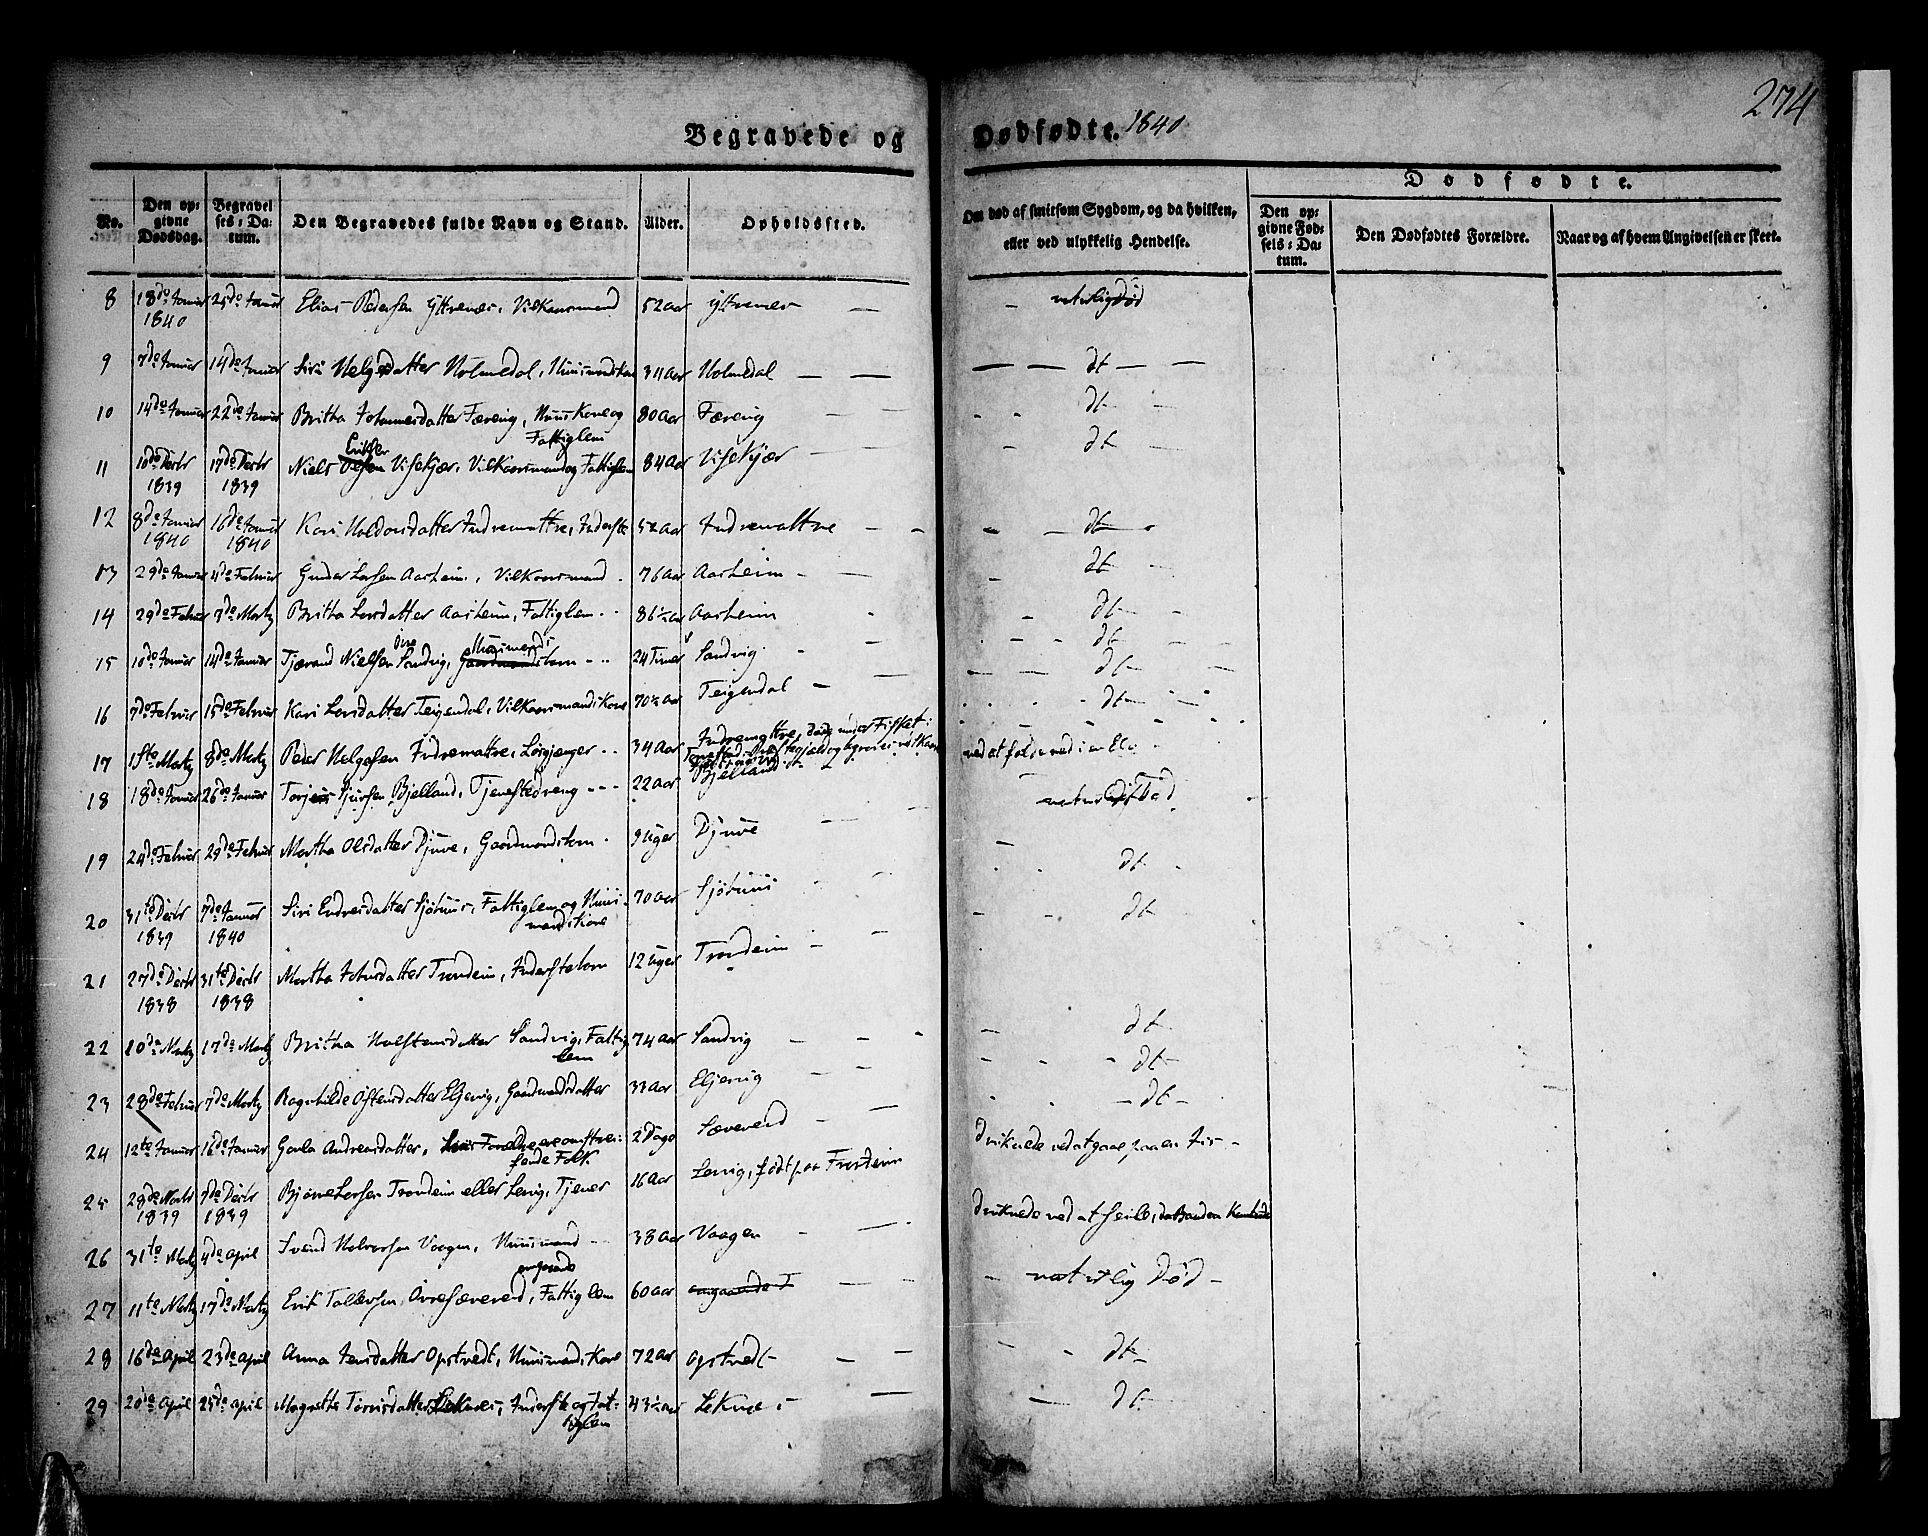 274
Begravede og Dødfødte. 1840
No.
Den opgivne Dødsdag.
Begravelses-Datum.
Den Begravedes fulde Navn og Stand.
Alder.
Opholdssted.
Om død af smitsom Sygdom, og da hvilken, eller ved ulykkelig Hendelse.
Dødfødte.
Den opgivne Fødsels-Datum.
Den Dødfødtes Forældre.
Naar og af hvem Angivelsen er skeet.
8 18de Januar 1840 25de Januar Elias Pedersen Yttrenes, Vilkaarsmand 52 Aar Yttrenes — naturlig død
9 7de Januar 14de Januar Siri Helgesdatter Holmedal, Huusmandskone 34 Aar Holmedal — dt
10 14de Januar 22de Januar Britha Johannesdatter Færevig, Huus Kone og Fattiglem 80 Aar Færevig dt
11 10de Decbr 1839 17de Decbr 1839 Niels Olsen Vilkaarsmand og Fattiglem 84 Aar dt
12 8de Januar 1840 16de Januar 1840 Kari Haldorsdatter Indremattre, Inderste Indremattre dt
13 29de Januar 4de Februar Gunder Larsen Aasheim, Vilkaarsmand 76 Aar Aasheim dt
14 29de Februar 7de Martz Britha Larsdatter Aasheim, Fattiglem 86½ Aar Aasheim dt
15 10de Januar 14de Januar Tjærand Nielsen Sandvig, Huusmands 24 Timer Sandvig dt
16 7de Februar 15de Februar Kari Larsdatter Teigendal, Vilkaarsmandskone 70½ Aar Teigendal dt
17 1ste Martz 8de Martz Peder Helgesen Indremattre, 34 Aar Indremattre, døde under Fisket
18 18de Januar 26de Januar Sjursen Bjelland, Tjenestedreng 22 Aar Bjelland naturlig Død
19 24de Februar 29de Februar Martha Olsdatter Djuve, Gaardmandsbarn 9 Uger Djuve dt
20 31te Decbr 1839 7de Januar 1840 Siri Endresdatter Sjøhuus, Fattiglem og Huusmandskone 70 Aar Sjøhuus dt
21 27de Decbr 1838 31te Decbr 1838 Martha Johnsdatter Trondeim, Inderstebarn 12 Uger Trondeim
22 10de Martz 17de Martz Britha Halstensdatter Sandvig, Fattiglem 74 Aar Sandvig dt
23 28de Februar 7de Martz Ragnhilde Østensdatter Eljervig, Gaardmandsdatter 33 Aar Eljervig dt
24 12te Januar 16de Januar Andreasdatter, Forældre ere omstreifende Folk 2 Dage Sæverend dt
25 29de Novbr 1839 7de Decbr 1839 Bjørne Larsen Trondeim eller Lervig, Tjener 16 Aar Lervig, født paa Trondeim druknede ved at gaae paa en Iis
26 31te Martz 4de April Svend Halvorsen Vaagen, Huusmand 38 Aar Vaagen druknede ved at seile, da Baaden Kantrede
27 11te Martz 17de Martz Erik Tollefsen Øvresæverend, Fattiglem 60 Aar omgaaende naturlig Død
28 16de April 23de April Anna Jensdatter Opstvedt, Huusmands Kone 72 Aar Opstvedt dt
29 20de April 25de April Magrethe Inderste og Fattiglem 43½ Aar Leknes dt